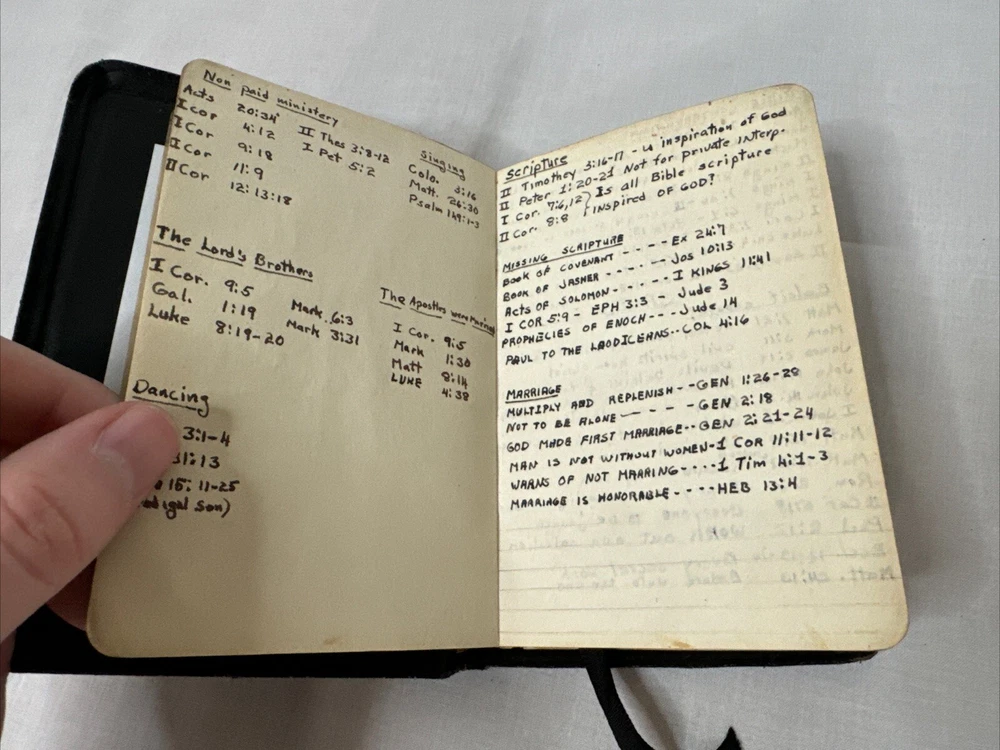 Non paid ministery
Acts 20:34
I Cor 4:12
I Cor 9:18
I Cor 11:9
II Cor 12:13:18
II Thes 3:8-12
I Pet 5:2
Singing
Colo. 3:16
Matt. 26:30
Psalm 149:1-3
The Lord's Brothers
I Cor. 9:5
Gal. 1:19
Luke 8:19-20
Mark. 6:3
Mark 3:31
The Apostles were Married
I Cor. 9:5
Mark 1:30
Matt 8:14
LUKE 4:38
Dancing
3:1-4
31:13
15:11-25
Son)
Scripture
II Timothey 3:16-17 - u inspiration of God
II Peter 1:20-21 Not for private interp.
I Cor. 7:6,12 } Is all Bible scripture
II Cor. 8:8 } inspired of GOD?
MISSING SCRIPTURE
BOOK OF COVENANT - - - - EX 24:7
BOOK OF JASHER - - - - - - JOS 10:13
ACTS OF SOLOMON - - - - - - I KINGS 11:41
I COR 5:9 - EPH 3:3 - Jude 3
PROPHECIES OF ENOCH - - - Jude 14
PAUL TO THE LAODICEANS - - COL 4:16
MARRIAGE
MULTIPLY AND REPLENISH - - GEN 1:26-28
NOT TO BE ALONE - - - - GEN 2:18
GOD MADE FIRST MARRIAGE - - GEN 2:21-24
MAN IS NOT WITHOUT WOMEN - 1 COR 11:11-12
WARNS OF NOT MARRING - - - - 1 Tim 4:1-3
MARRIAGE IS HONORABLE - - - - HEB 13:4